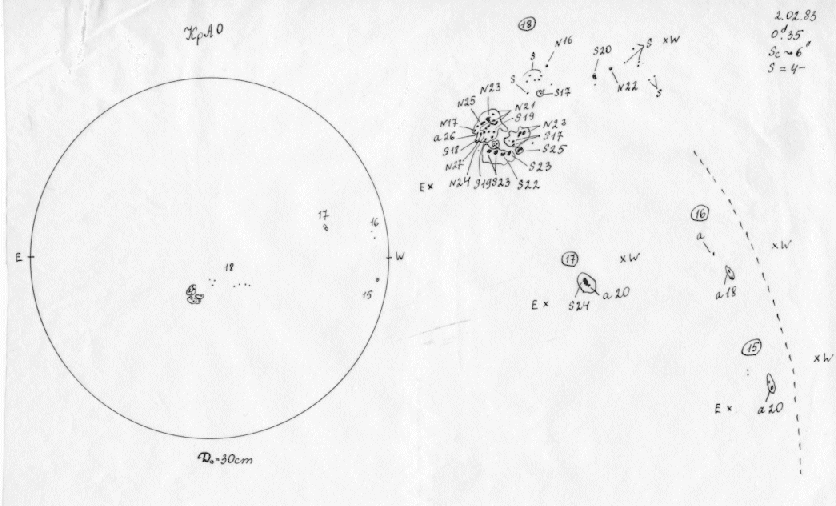 КрАО
17
16
E
W
18
15
D₀=30cm
2.02.83
0ᵈ.35
S = 4-
18
N16
S
S20
S
xW
S
S17
N22
S
N23
N25
N21
S19
N17
N22
a26
S17
S18
S25
N27
S23
E x
N24
S19
S23
S22
16
a
xW
17
xW
a18
E x
S24
a20
15
xW
E x
a20